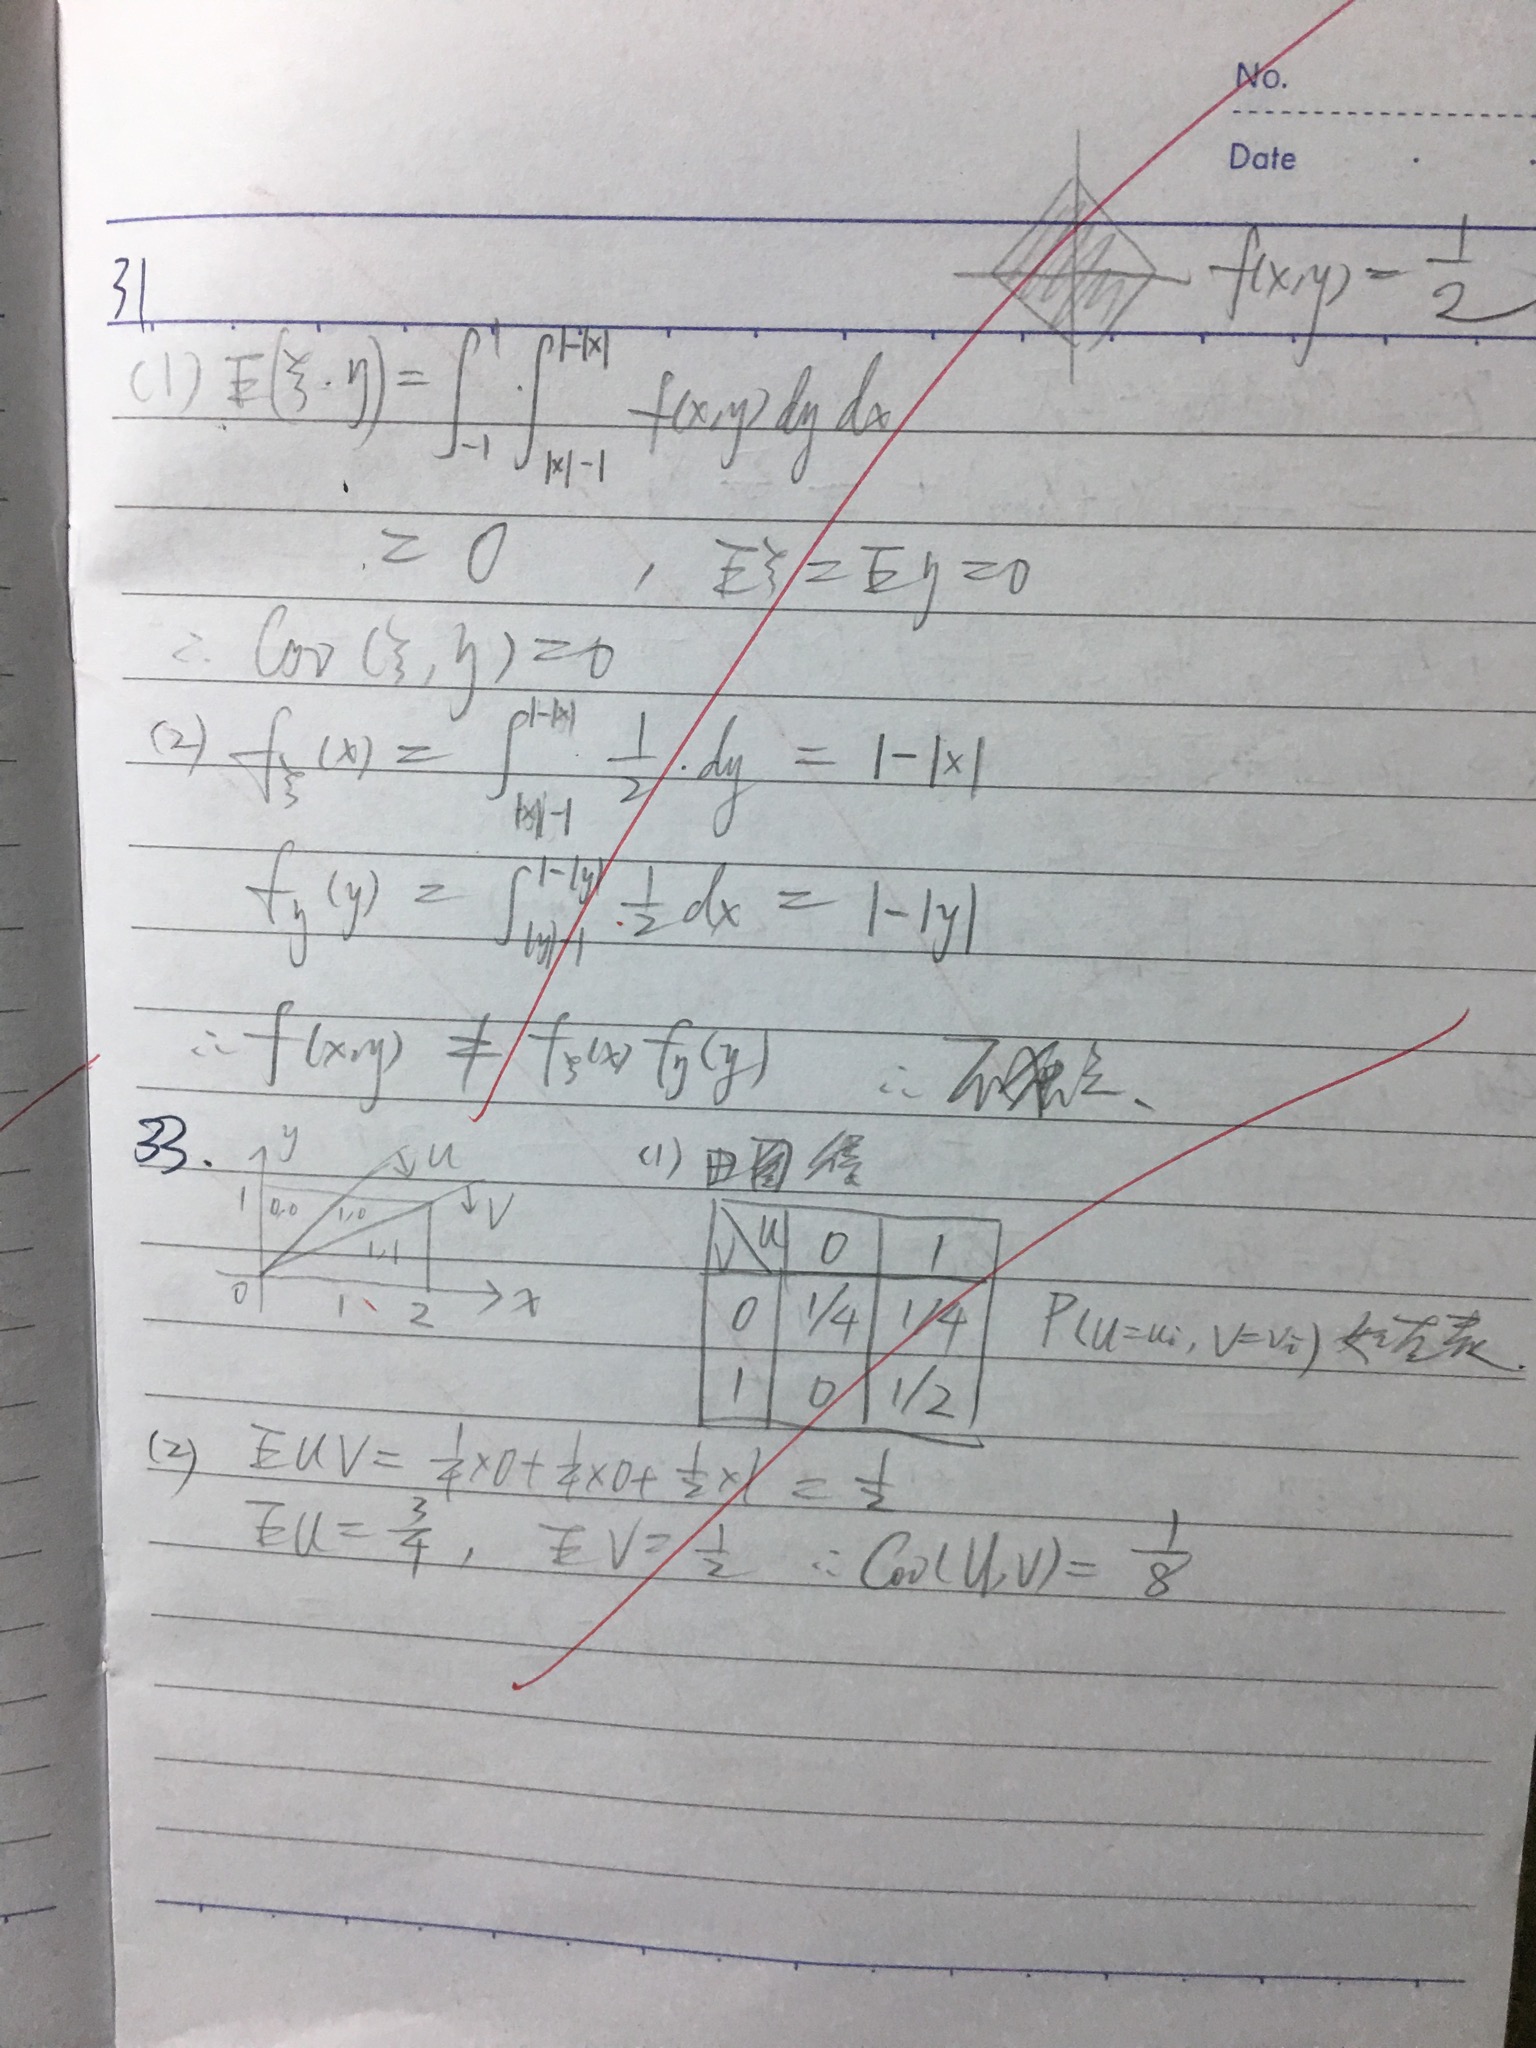 No.
Date
31
f(x,y) = 1/2
(1) E(ξ·η) = ∫_{-1}^{1} ∫_{|x|-1}^{1-|x|} f(x,y) dy dx
= 0 , Eξ = Eη = 0
∴ Cov(ξ,η) = 0
(2) f_ξ(x) = ∫_{|x|-1}^{1-|x|} 1/2 · dy = 1-|x|
f_η(y) = ∫_{|y|-1}^{1-|y|} 1/2 dx = 1-|y|
∴ f(x,y) ≠ f_ξ(x) f_η(y) ∴ 不独立、
33. (1) 由图得
y u v
1 0,0 1,0 1,1
0 1 2 x
v\u 0 1
0 1/4 1/4
1 0 1/2
P(u=ui, v=vi) 如左表.
(2) EUV = 1/4×0 + 1/4×0 + 1/2×1 = 1/2
EU = 3/4 , EV = 1/2 ∴ Cov(U,V) = 1/8